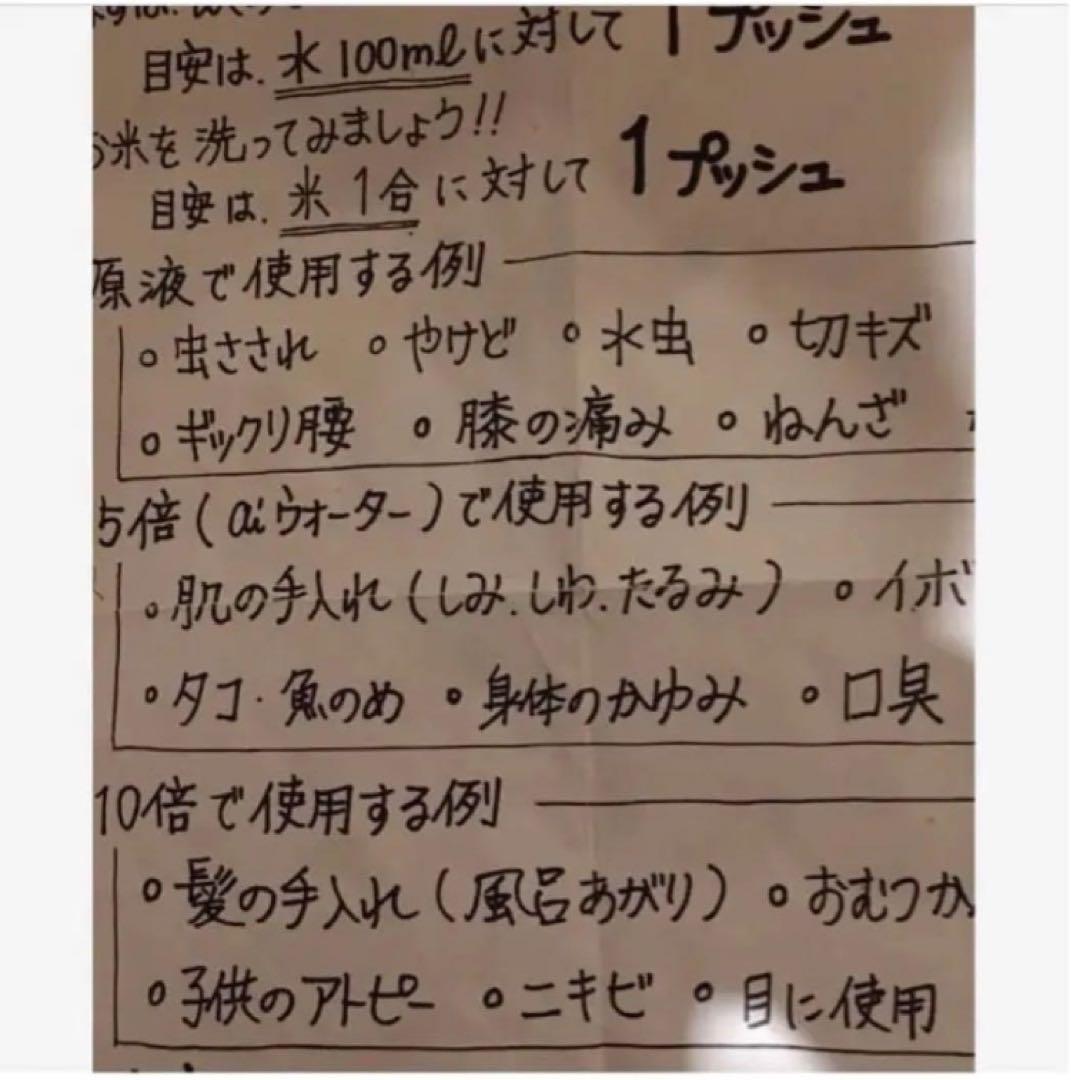 目安は、水100mlに対して 1プッシュ
お米を洗ってみましょう!!
目安は、米1合に対して 1プッシュ
原液で使用する例
○虫さされ ○やけど ○水虫 ○切キズ
○ギックリ腰 ○膝の痛み ○ねんざ
5倍(aiウォーター)で使用する例
○肌の手入れ(しみ、しわ、たるみ) ○イボ
○タコ・魚のめ ○身体のかゆみ ○口臭
10倍で使用する例
○髪の手入れ(風呂あがり) ○おむつか
○子供のアトピー ○ニキビ ○目に使用